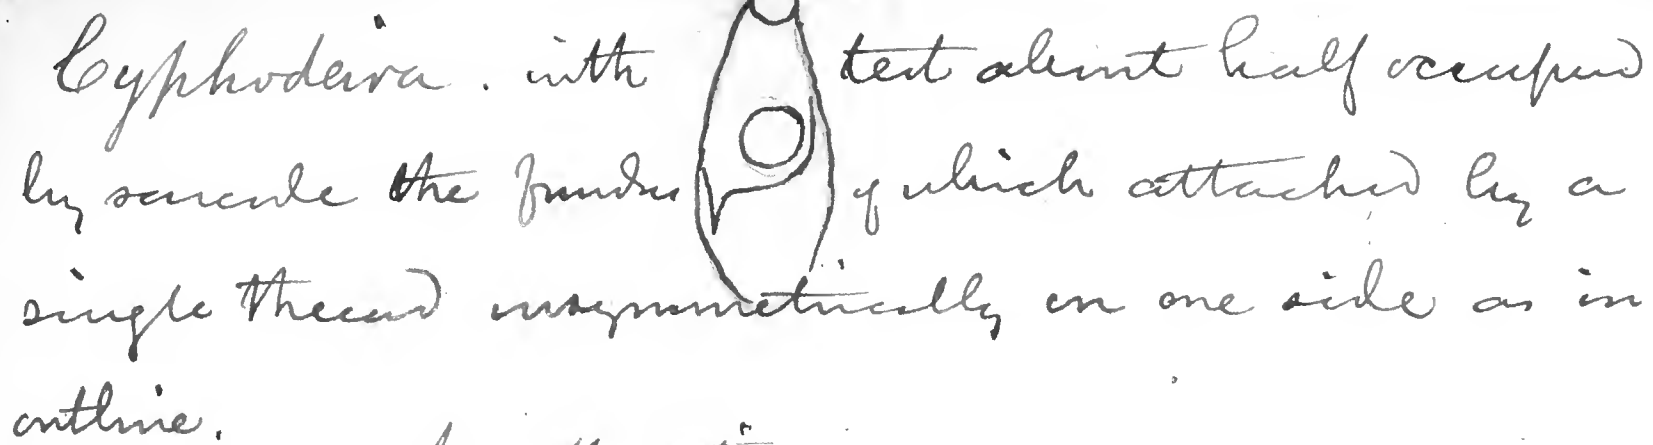 Cyphoderia. with test about half occupied
by sarcode the fundus of which attached by a
single thread unsymmetrically on one side as in
outline.